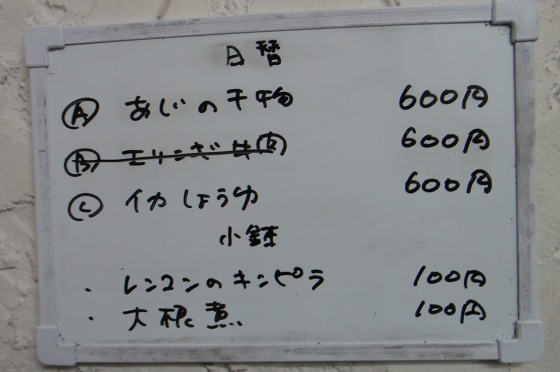 日替
Ⓐ あじの干物 600円
Ⓑ エリンギ 600円
Ⓒ イカしょうゆ 600円
小鉢
・レンコンのキンピラ 100円
・大根煮 100円